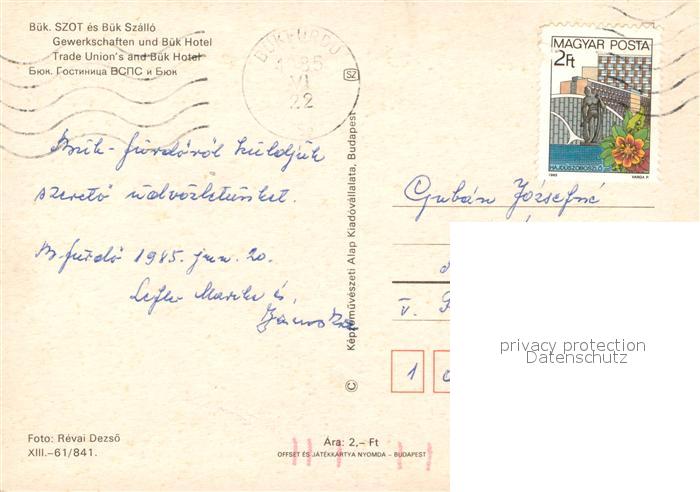 Bük. SZOT és Bük Szálló
Gewerkschaften und Bük Hotel
Trade Union's and Bük Hotel
Бюк. Гостиница ВСПС и Бюк
BÜKFÜRDŐ
85
VI
22
SZ
MAGYAR POSTA
2Ft
HAJDÚSZOBOSZLÓ
1983 VARGA P.
Bük-fürdőről küldjük
szerető üdvözletünket.
B.fürdő 1985. jun. 20.
Marika és
Gubán Józsefné
V.
1
Képzőművészeti Alap Kiadóvállalata, Budapest
©
privacy protection
Datenschutz
Foto: Révai Dezső
XIII.–61/841.
Ára: 2,– Ft
OFFSET ÉS JÁTÉKKÁRTYA NYOMDA – BUDAPEST